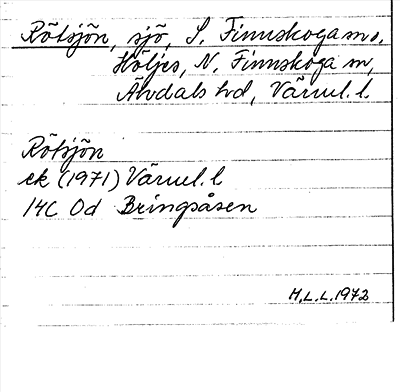 Rötsjön, sjö, S. Finnskoga sn o.
Höljes, N. Finnskoga sn,
Älvdals hd, Värml. l.
Rötsjön
ek (1971) Värml. l
14C 0d Bringsåsen
M.L.L. 1972